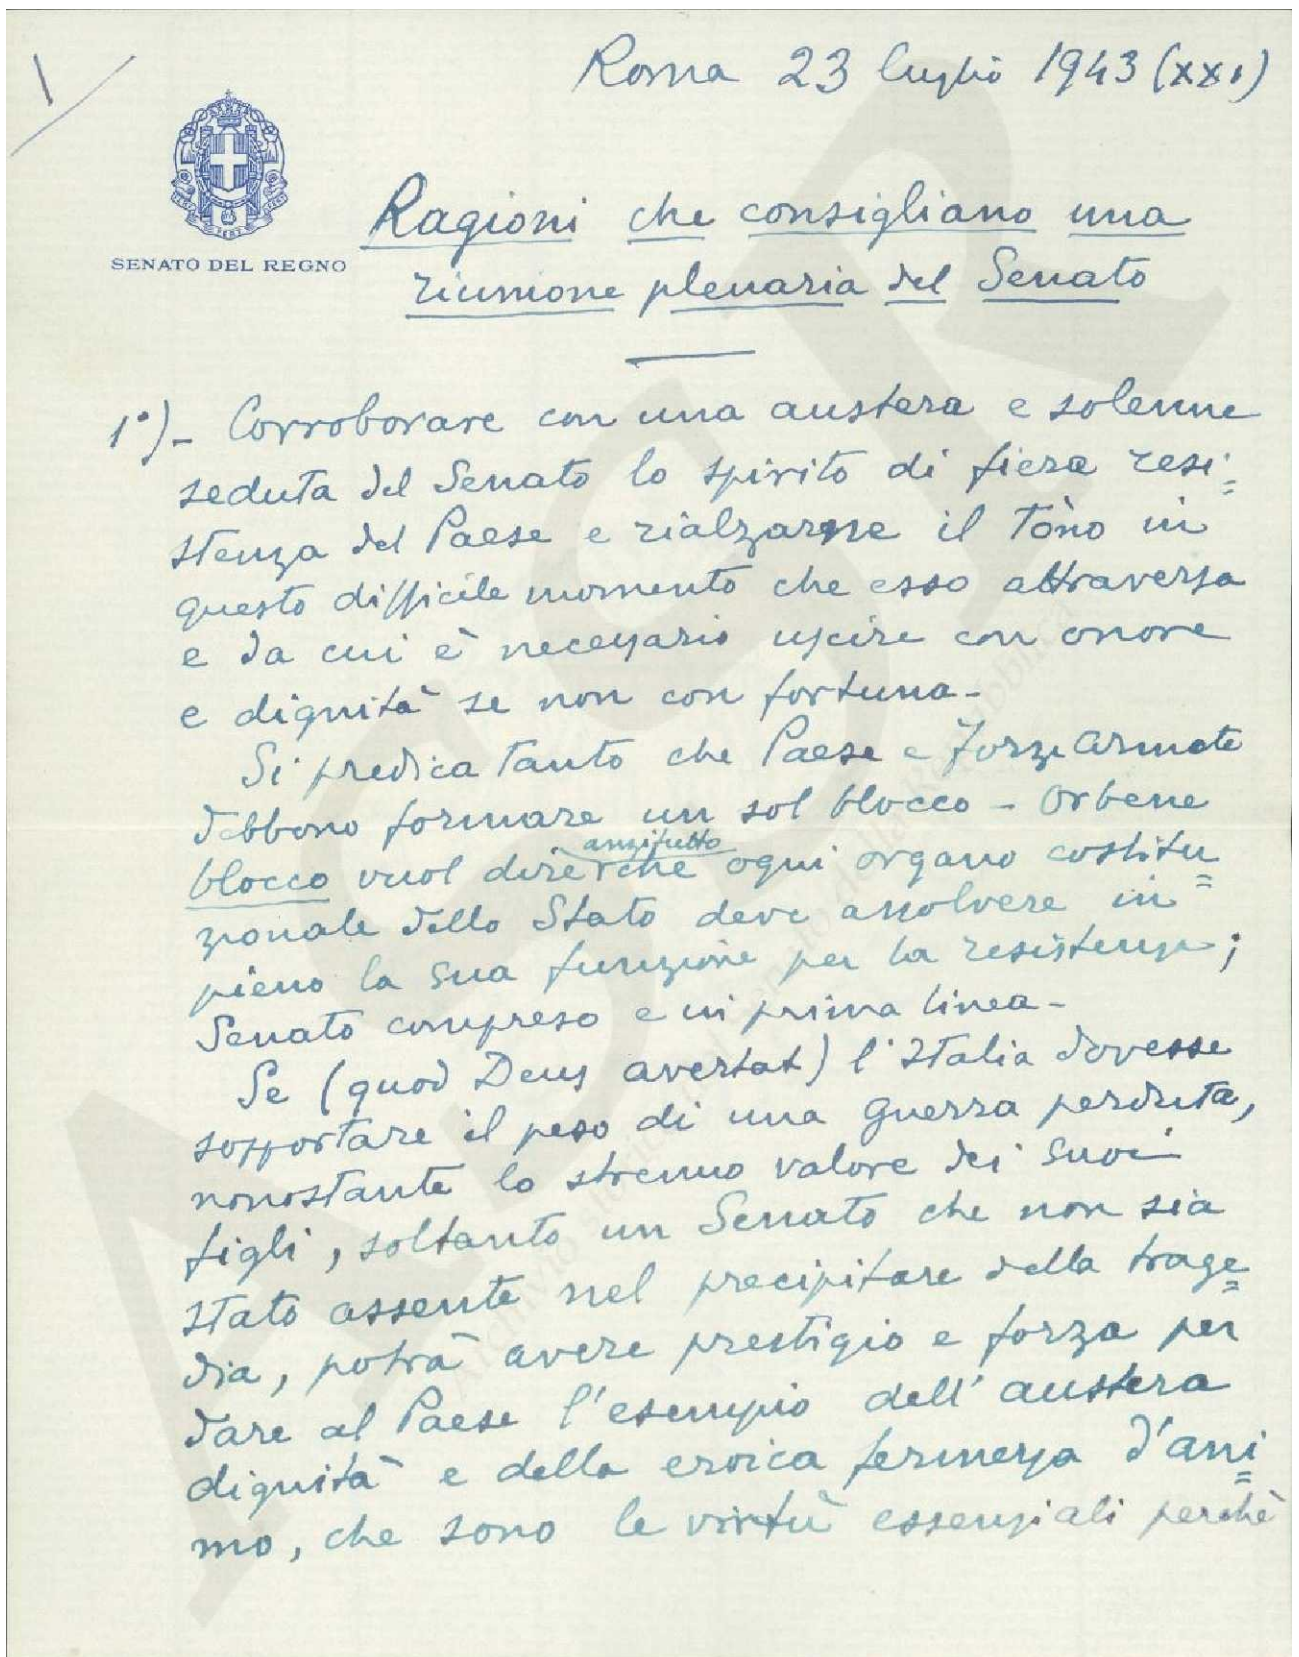 1
Roma 23 luglio 1943 (XXI)
SENATO DEL REGNO
Ragioni che consigliano una
riunione plenaria del Senato
1°) - Corroborare con una austera e solenne
seduta del Senato lo spirito di fiera resi=
stenza del Paese e rialzarne il tòno in
questo difficile momento che esso attraversa
e da cui è necessario uscire con onore
e dignità se non con fortuna -
Si predica tanto che Paese e Forze Armate
debbono formare un sol blocco - Orbene
anzitutto
blocco vuol dire che ogni organo costitu=
zionale dello Stato deve assolvere in
pieno la sua funzione per la resistenza;
Senato compreso e in prima linea -
Se (quod Deus avertat) l'Italia dovesse
sopportare il peso di una guerra perduta,
nonostante lo strenuo valore dei suoi
figli, soltanto un Senato che non sia
stato assente nel precipitare della trage=
dia, potrà avere prestigio e forza per
dare al Paese l'esempio dell'austera
dignità e della eroica fermezza d'ani=
mo, che sono le virtù essenziali perchè